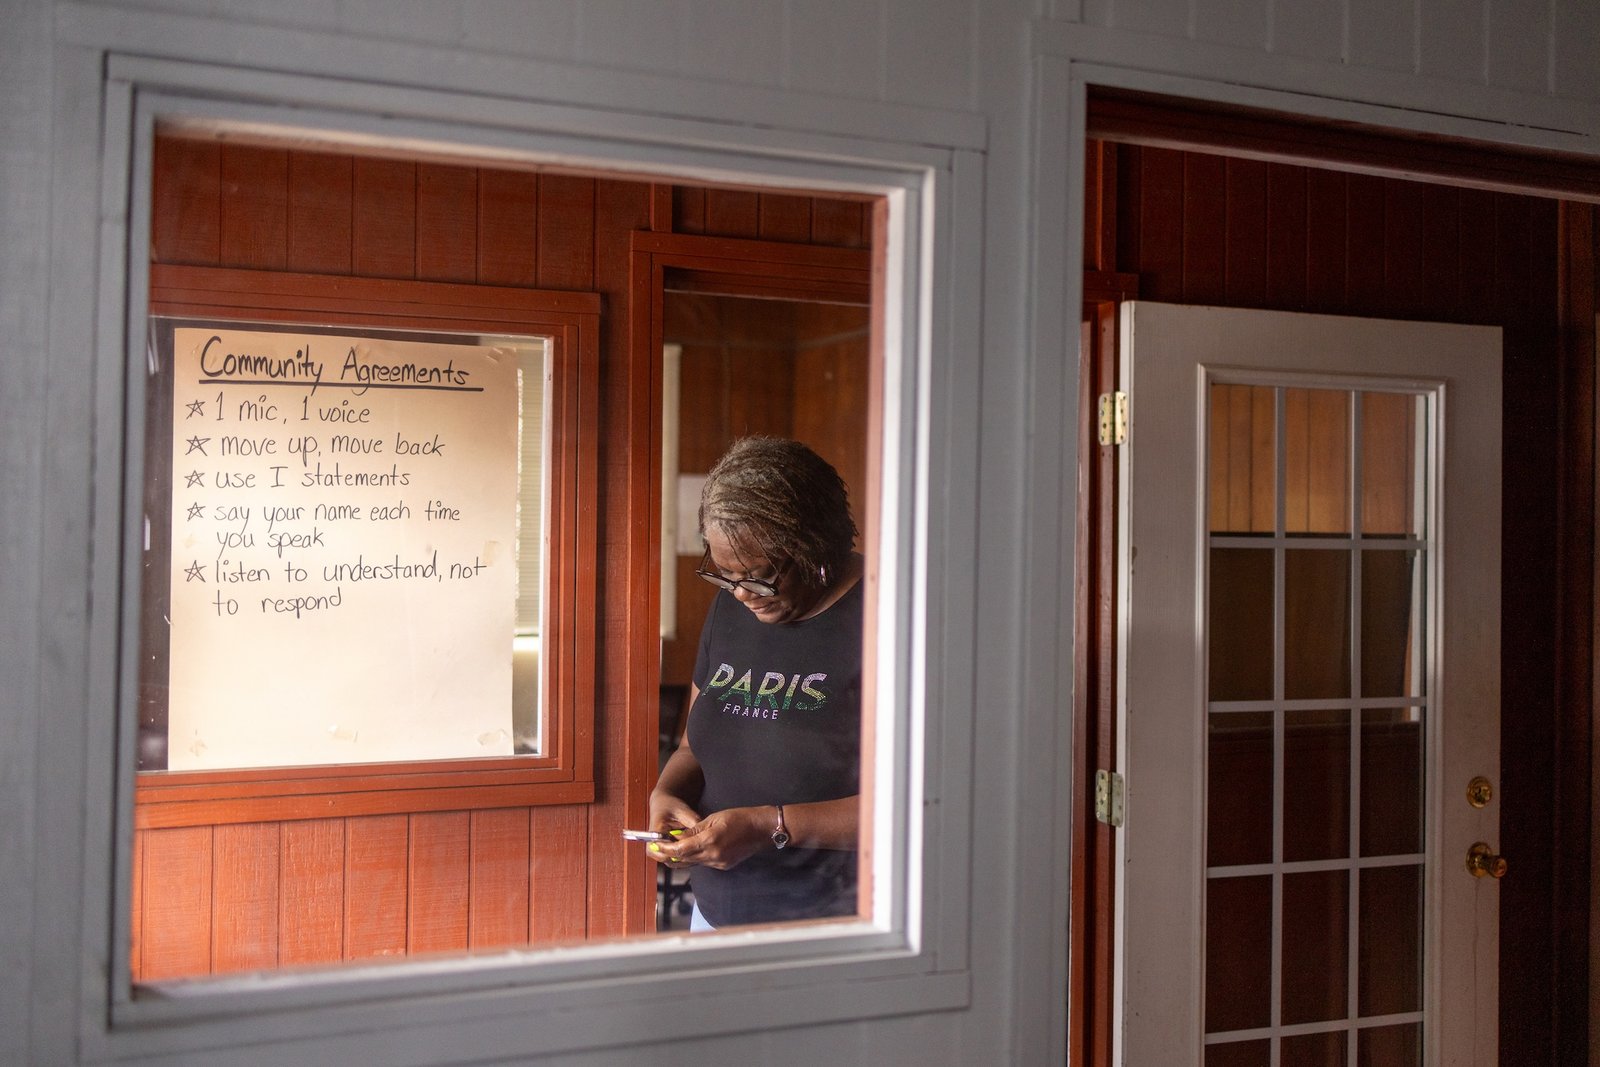 Community Agreements
☆ 1 mic, 1 voice
☆ move up, move back
☆ use I statements
☆ say your name each time
you speak
☆ listen to understand, not
to respond
PARIS
FRANCE